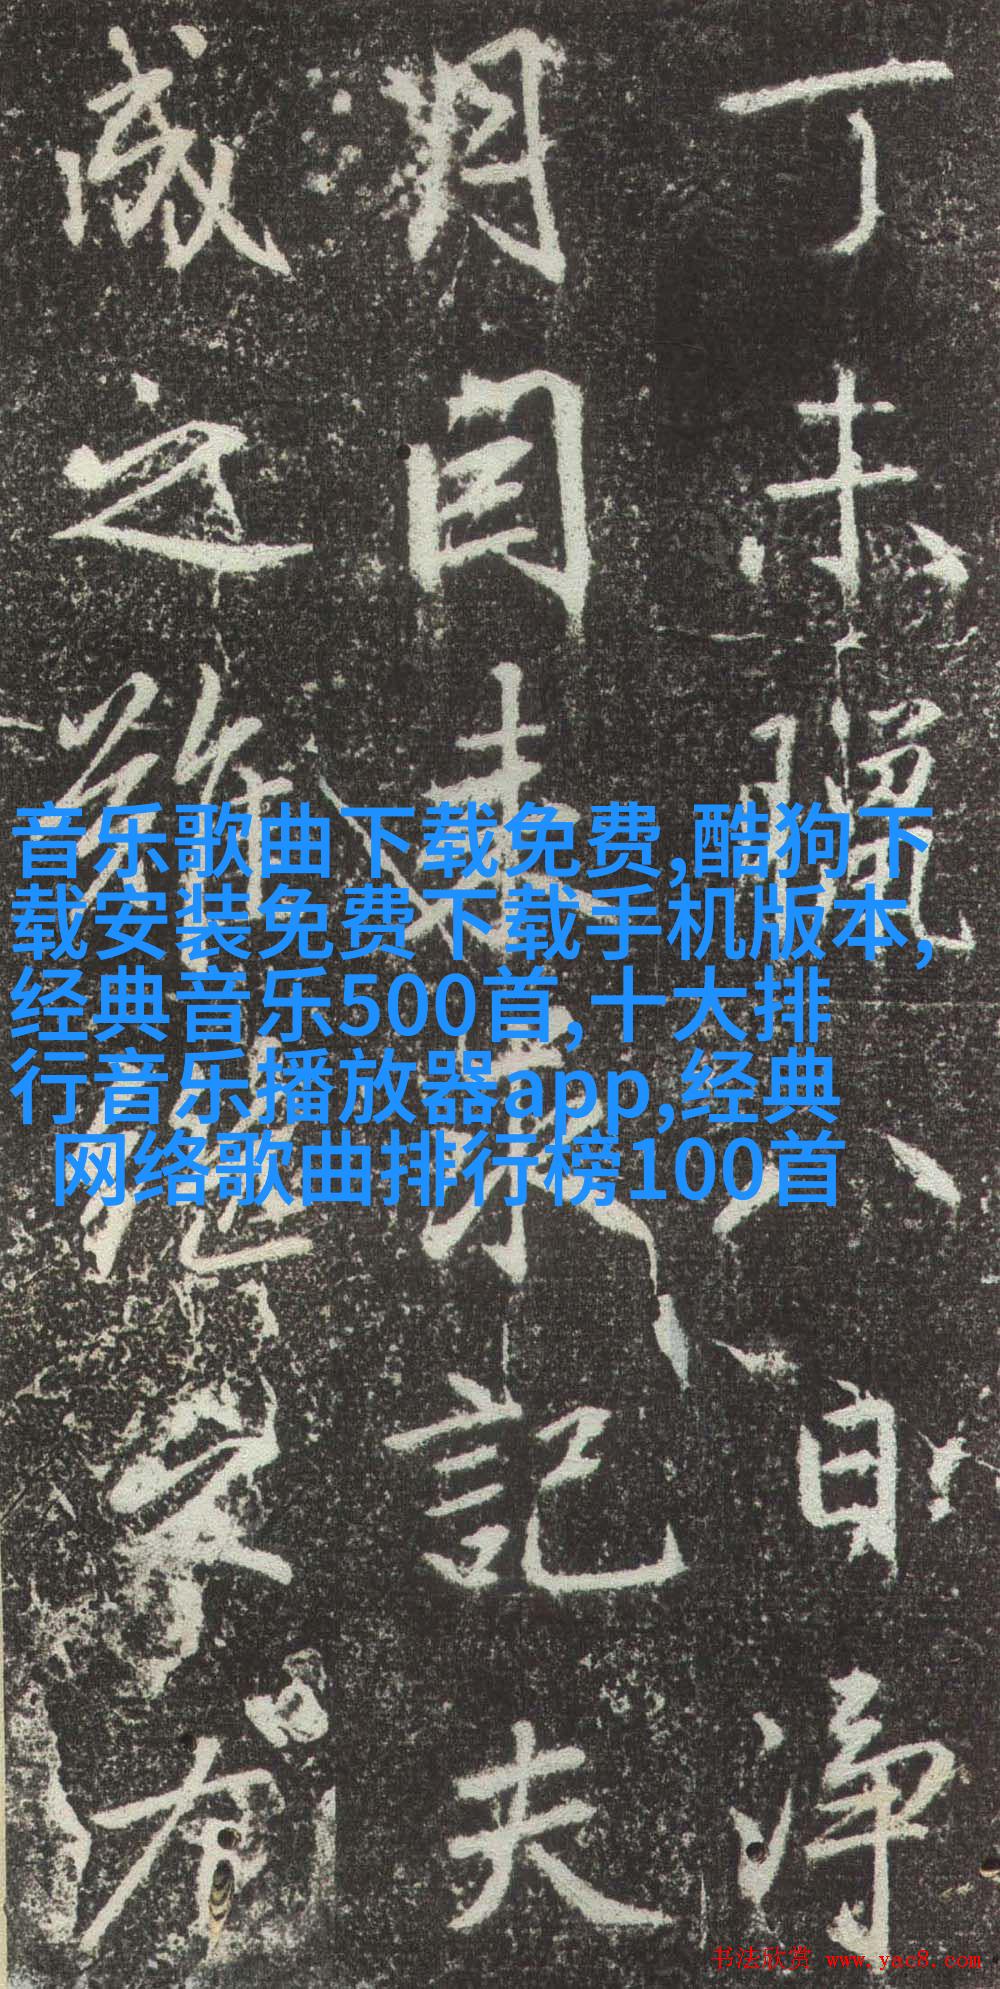 丁未臘八日淨
月因来求記夫
成之難
音乐歌曲下载免费,酷狗下
载安装免费下载手机版本,
经典音乐500首,十大排
行音乐播放器app,经典
网络歌曲排行榜100首
书法欣赏 www.yac8.com